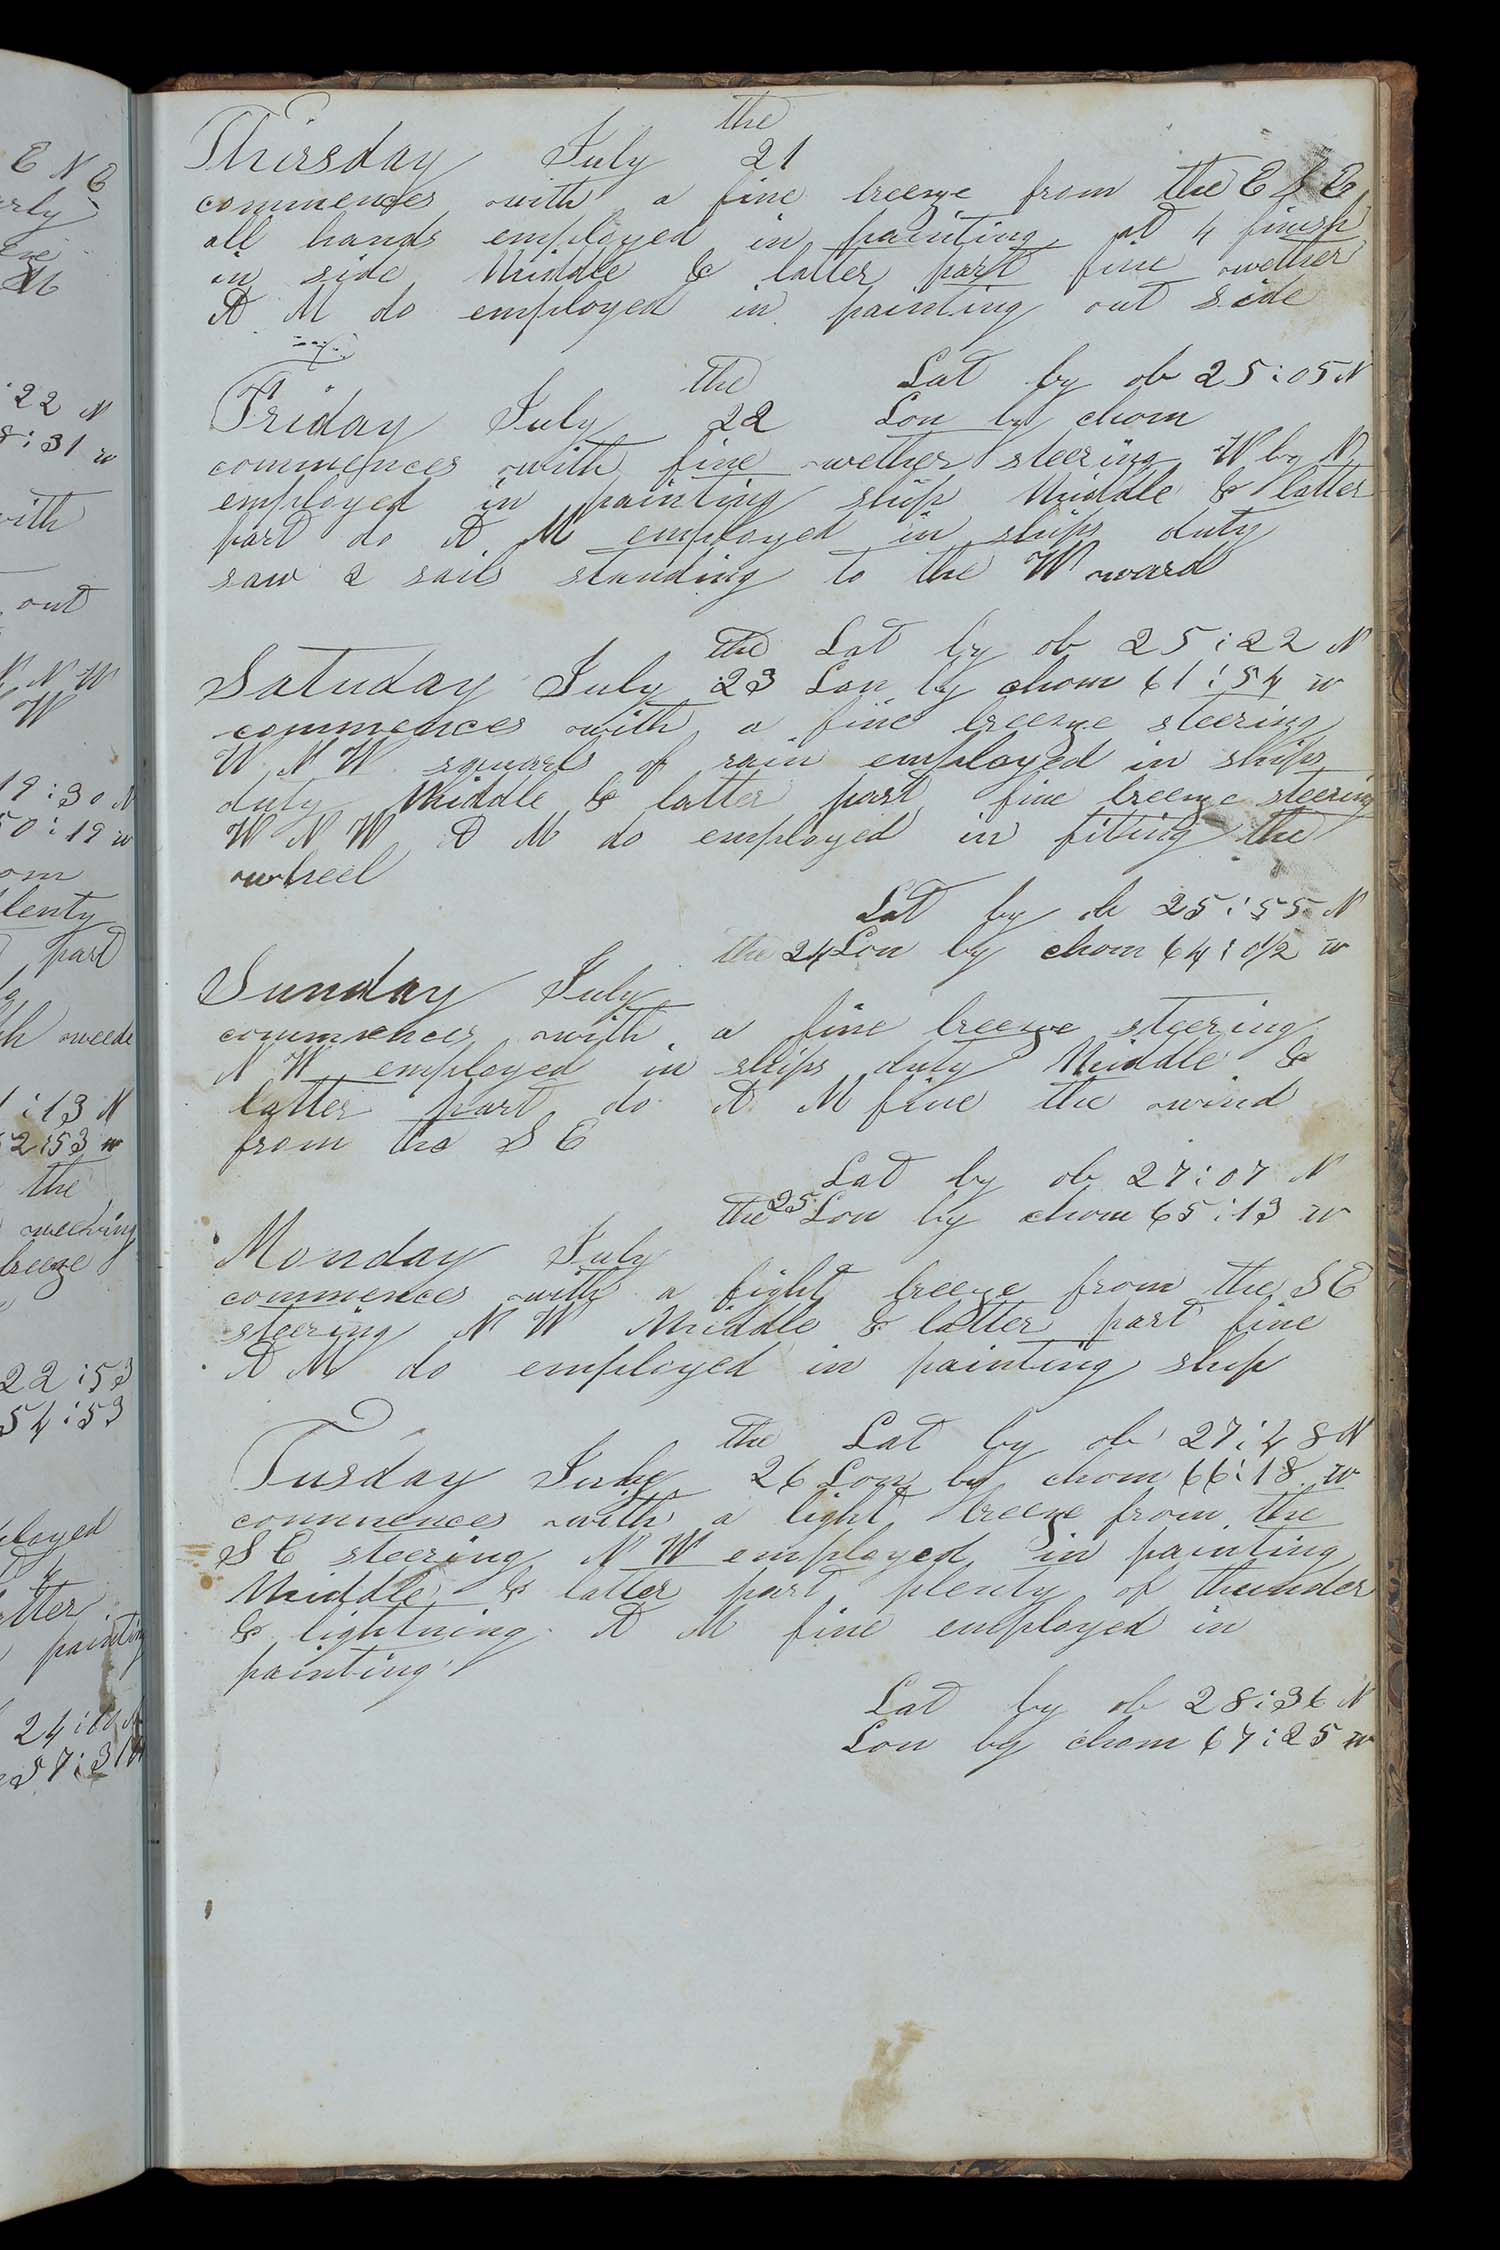 E N E
22 N
8:31 w
with
out
N N W
W
19:30 N
50:19 w
plenty
part
weede
1:13 N
52:53 w
the
breeze
22:53
54:53
ployed
latter
painting
Thirsday July the 21
commences with a fine breeze from the E S E
all hands employed in painting at 4 finish
in side Middle & latter part fine wether
A M do employed in painting out side
Lat by ob 25:05 N
Friday July the 22 Lon by chom
commences with fine wether steering W by N
employed in painting ship Middle & latter
part do A M employed in ships duty
saw 2 sails standing to the W ward
Lat by ob 25:22 N
Satuday July the 23 Lon by chom 61:54 w
commences with a fine breeze steering
W N W squarls of rain employed in ships
duty Middle & latter part fine breeze steering
W N W A M do employed in fiting the
wheel
Lat by ob 25:55 N
the 24 Lon by chom 64:01/2 w
Sunday July
commences with a fine breeze steering
N W employed in ships duty Middle &
latter part do A M fine the wind
from the S E
Lat by ob 27:07 N
the 25 Lon by chom 65:13 w
Monday July
commences with a light breeze from the S E
steering N W Middle & latter part fine
A M do employed in painting ship
the Lat by ob 27:48 N
Tusday July 26 Lon by chom 66:18 w
commences with a light breeze from the
S E steering N W employed in painting
Middle & latter part plenty of thunder
& lightning A M fine employed in
painting
Lat by ob 28:36 N
Lon by chom 67:25 w